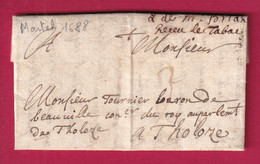 Martel 1688
2 des m. portax
receu le Tabac
A Monsieur
2
Monsieur Tournier baron de
beauville con.er du roy au parlent
das Tholoze
a Tholoze